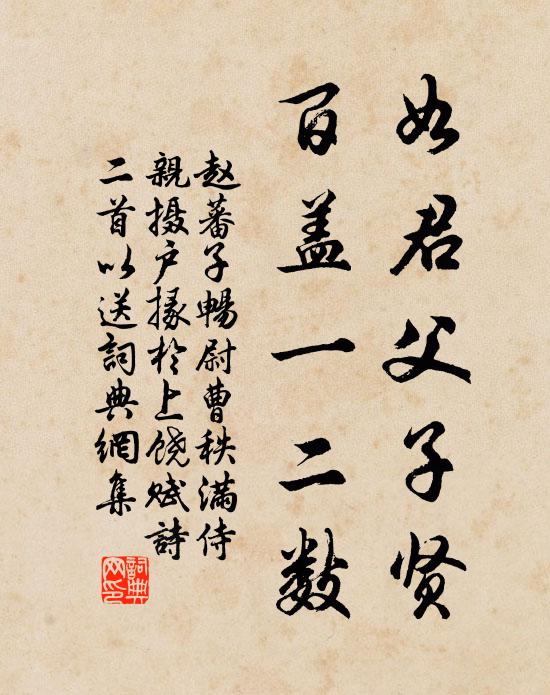 如君父子贤
百盖一二数
赵蕃子畅尉曹秩满侍
親摄户掾於上饶赋詩
二首以送詞典網集
詞典网印